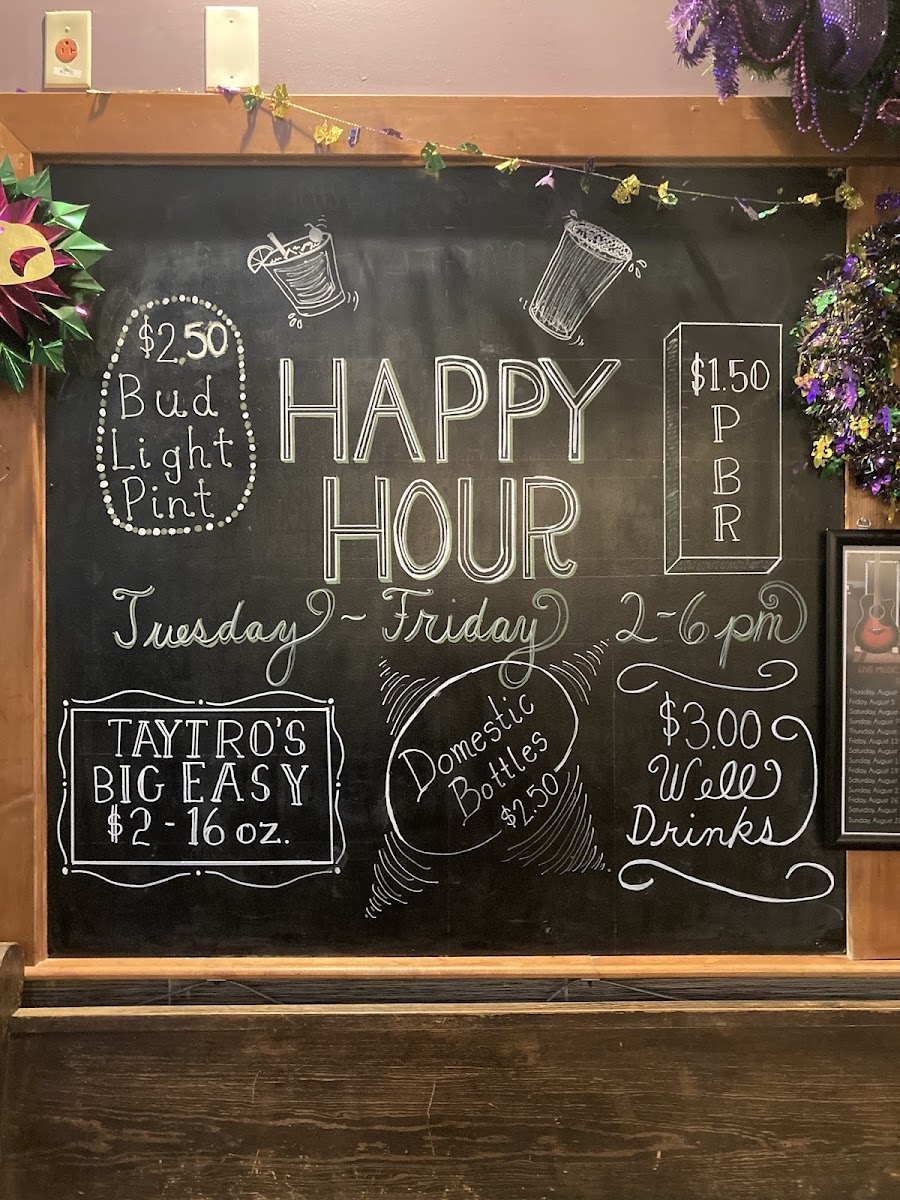 $2.50
Bud
Light
Pint
HAPPY
HOUR
$1.50
P
B
R
Tuesday ~ Friday 2-6 pm
TAYTRO'S
BIG EASY
$2-16 oz.
Domestic
Bottles
$2.50
$3.00
Well
Drinks
LIVE MUSIC
Thursday, August
Friday, August 5
Saturday, August
Sunday, August 7
Thursday, August
Friday, August 12
Saturday, August
Sunday, August
Thursday, August
Friday, August 19
Saturday, August
Sunday, August 2
Thursday, August
Friday, August 26
Saturday, August
Sunday, August 2